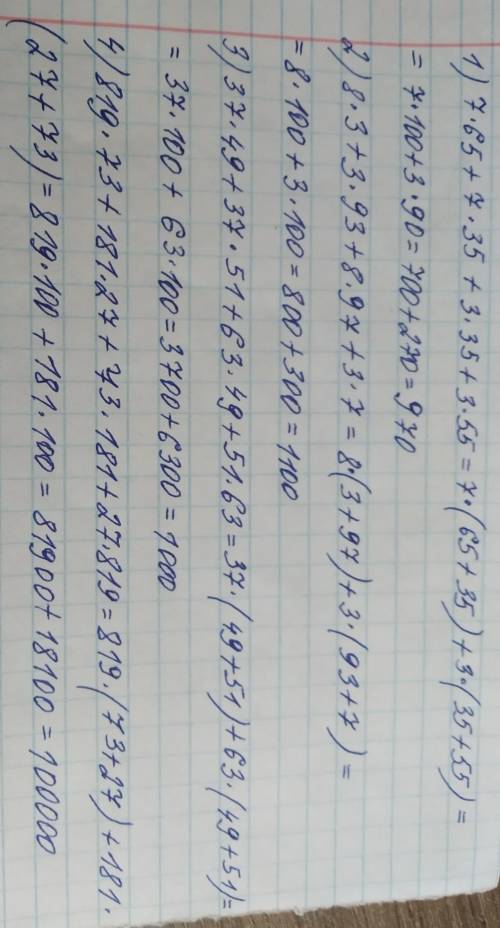 1) 7·65 + 7·35 + 3·35 + 3·55 = 7·(65 + 35) + 3·(35 + 55) =
= 7·100 + 3·90 = 700 + 270 = 970
2) 8·3 + 3·93 + 8·97 + 3·7 = 8·(3 + 97) + 3·(93 + 7) =
= 8·100 + 3·100 = 800 + 300 = 1100
3) 37·49 + 37·51 + 63·49 + 51·63 = 37·(49 + 51) + 63·(49 + 51) =
= 37·100 + 63·100 = 3700 + 6300 = 1000
4) 819·73 + 181·27 + 73·181 + 27·819 = 819·(73 + 27) + 181·
(27 + 73) = 819·100 + 181·100 = 81900 + 18100 = 100000